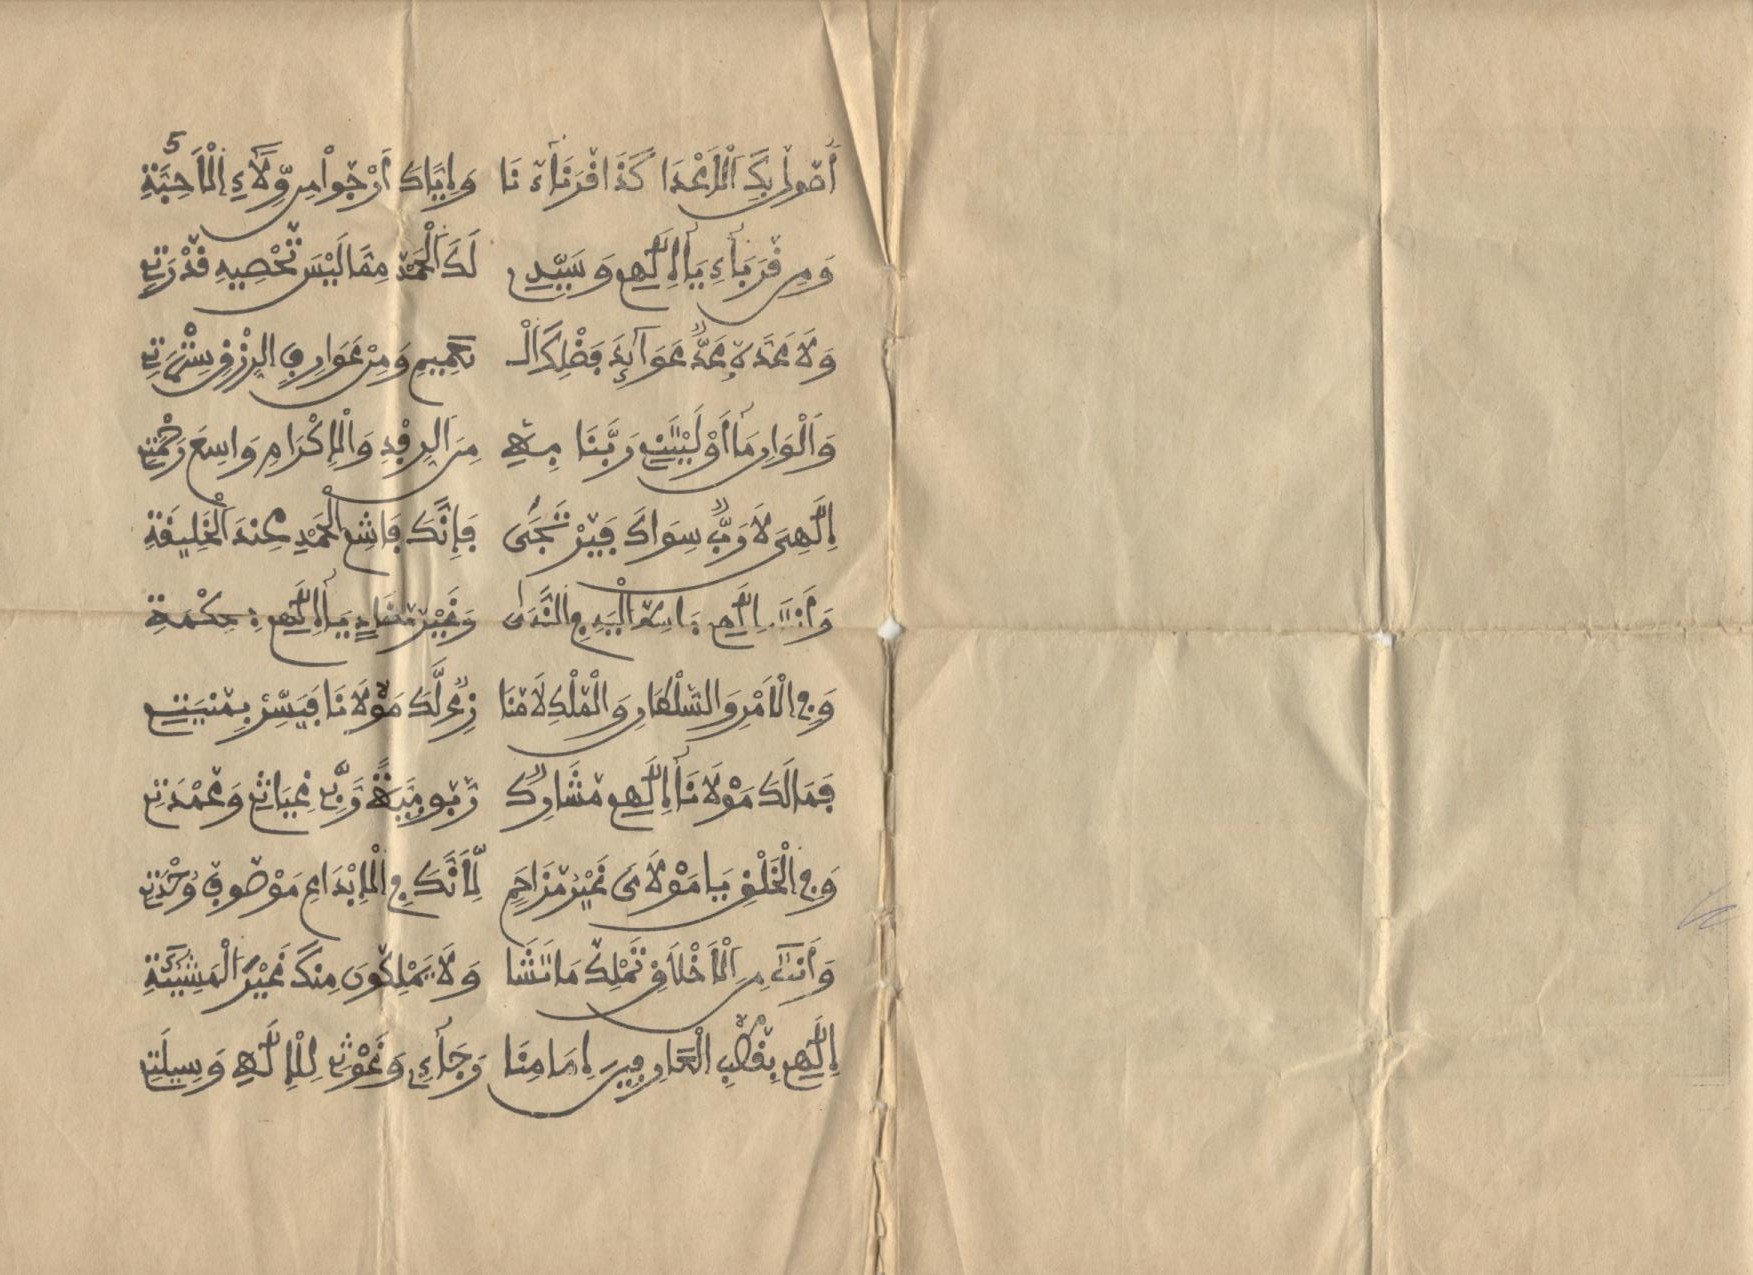 5
أَصُولُ بِكَ الْأَعْدَا كَذَا قُرَنَآءَ نَا وَإِيَّاكَ أَرْجُوا مِن وِّلَآءِ الْأَحِبَّةِ
وَمِن قُرَبَآءِ يَا إِلَٰهِي وَسَيِّدِي لَكَ الْحَمْدُ مِمَّا لَيْسَ تُحْصِيهِ قُدْرَتِي
وَلَا عَدَّ لِي عَدٌّ عَوَآئِدَ فَضْلِكَ الْـ ـعَمِيمِ وَمِنْ عَوَارِفِ الرِّزْقِ
وَأَلْوَانِ مَا أَوْلَيْتَنِي رَبَّنَا بِهِ مِنَ الرِّفْدِ وَالْإِكْرَامِ وَاسِعَ رَحْمَتِي
إِلَٰهِيَ لَا رَبٌّ سِوَاكَ فَإِنَّكَ فَاشِي الْحَمْدِ عِندَ الْخَلِيفَةِ
وَأَنتَ إِلَٰهِي بَاسِطُ الْيَدِ فِي النَّدَى وَغَيْرُ مُضَادٍ يَا إِلَٰهِي بِحِكْمَةِ
وَفِي الْأَمْرِ وَالسُّلْطَانِ وَالْمُلْكِ لَا مُنَا زِعٌ لَّكَ مَوْلَانَا فَيَسِّرْ بِمُنْيَتِي
فَمَا لَكَ مَوْلَانَا إِلَٰهِي مُشَارِكٌ رُبُوبِيَّةً رَبِّي غِيَاثِي وَعُمْدَتِي
وَفِي الْخَلْقِ يَا مَوْلَايَ غَيْرُ مُزَاحَمٍ لِّأَنَّكَ فِي الْإِبْدَاعِ مَوْصُوفُ وُحْدَتِي
وَأَنتَ مِنَ الْأَخْلَاقِ تَمْلِكُ مَا تَشَا وَلَا يَمْلِكُونَ مِنكَ غَيْرَ الْمَشِيئَةِ
إِلَٰهِي بِقُطْبِ الْعَارِفِينَ إِمَامِنَا رَجَآءِي وَغَوْثِي لِلْإِلَٰهِ وَسِيلَتِي